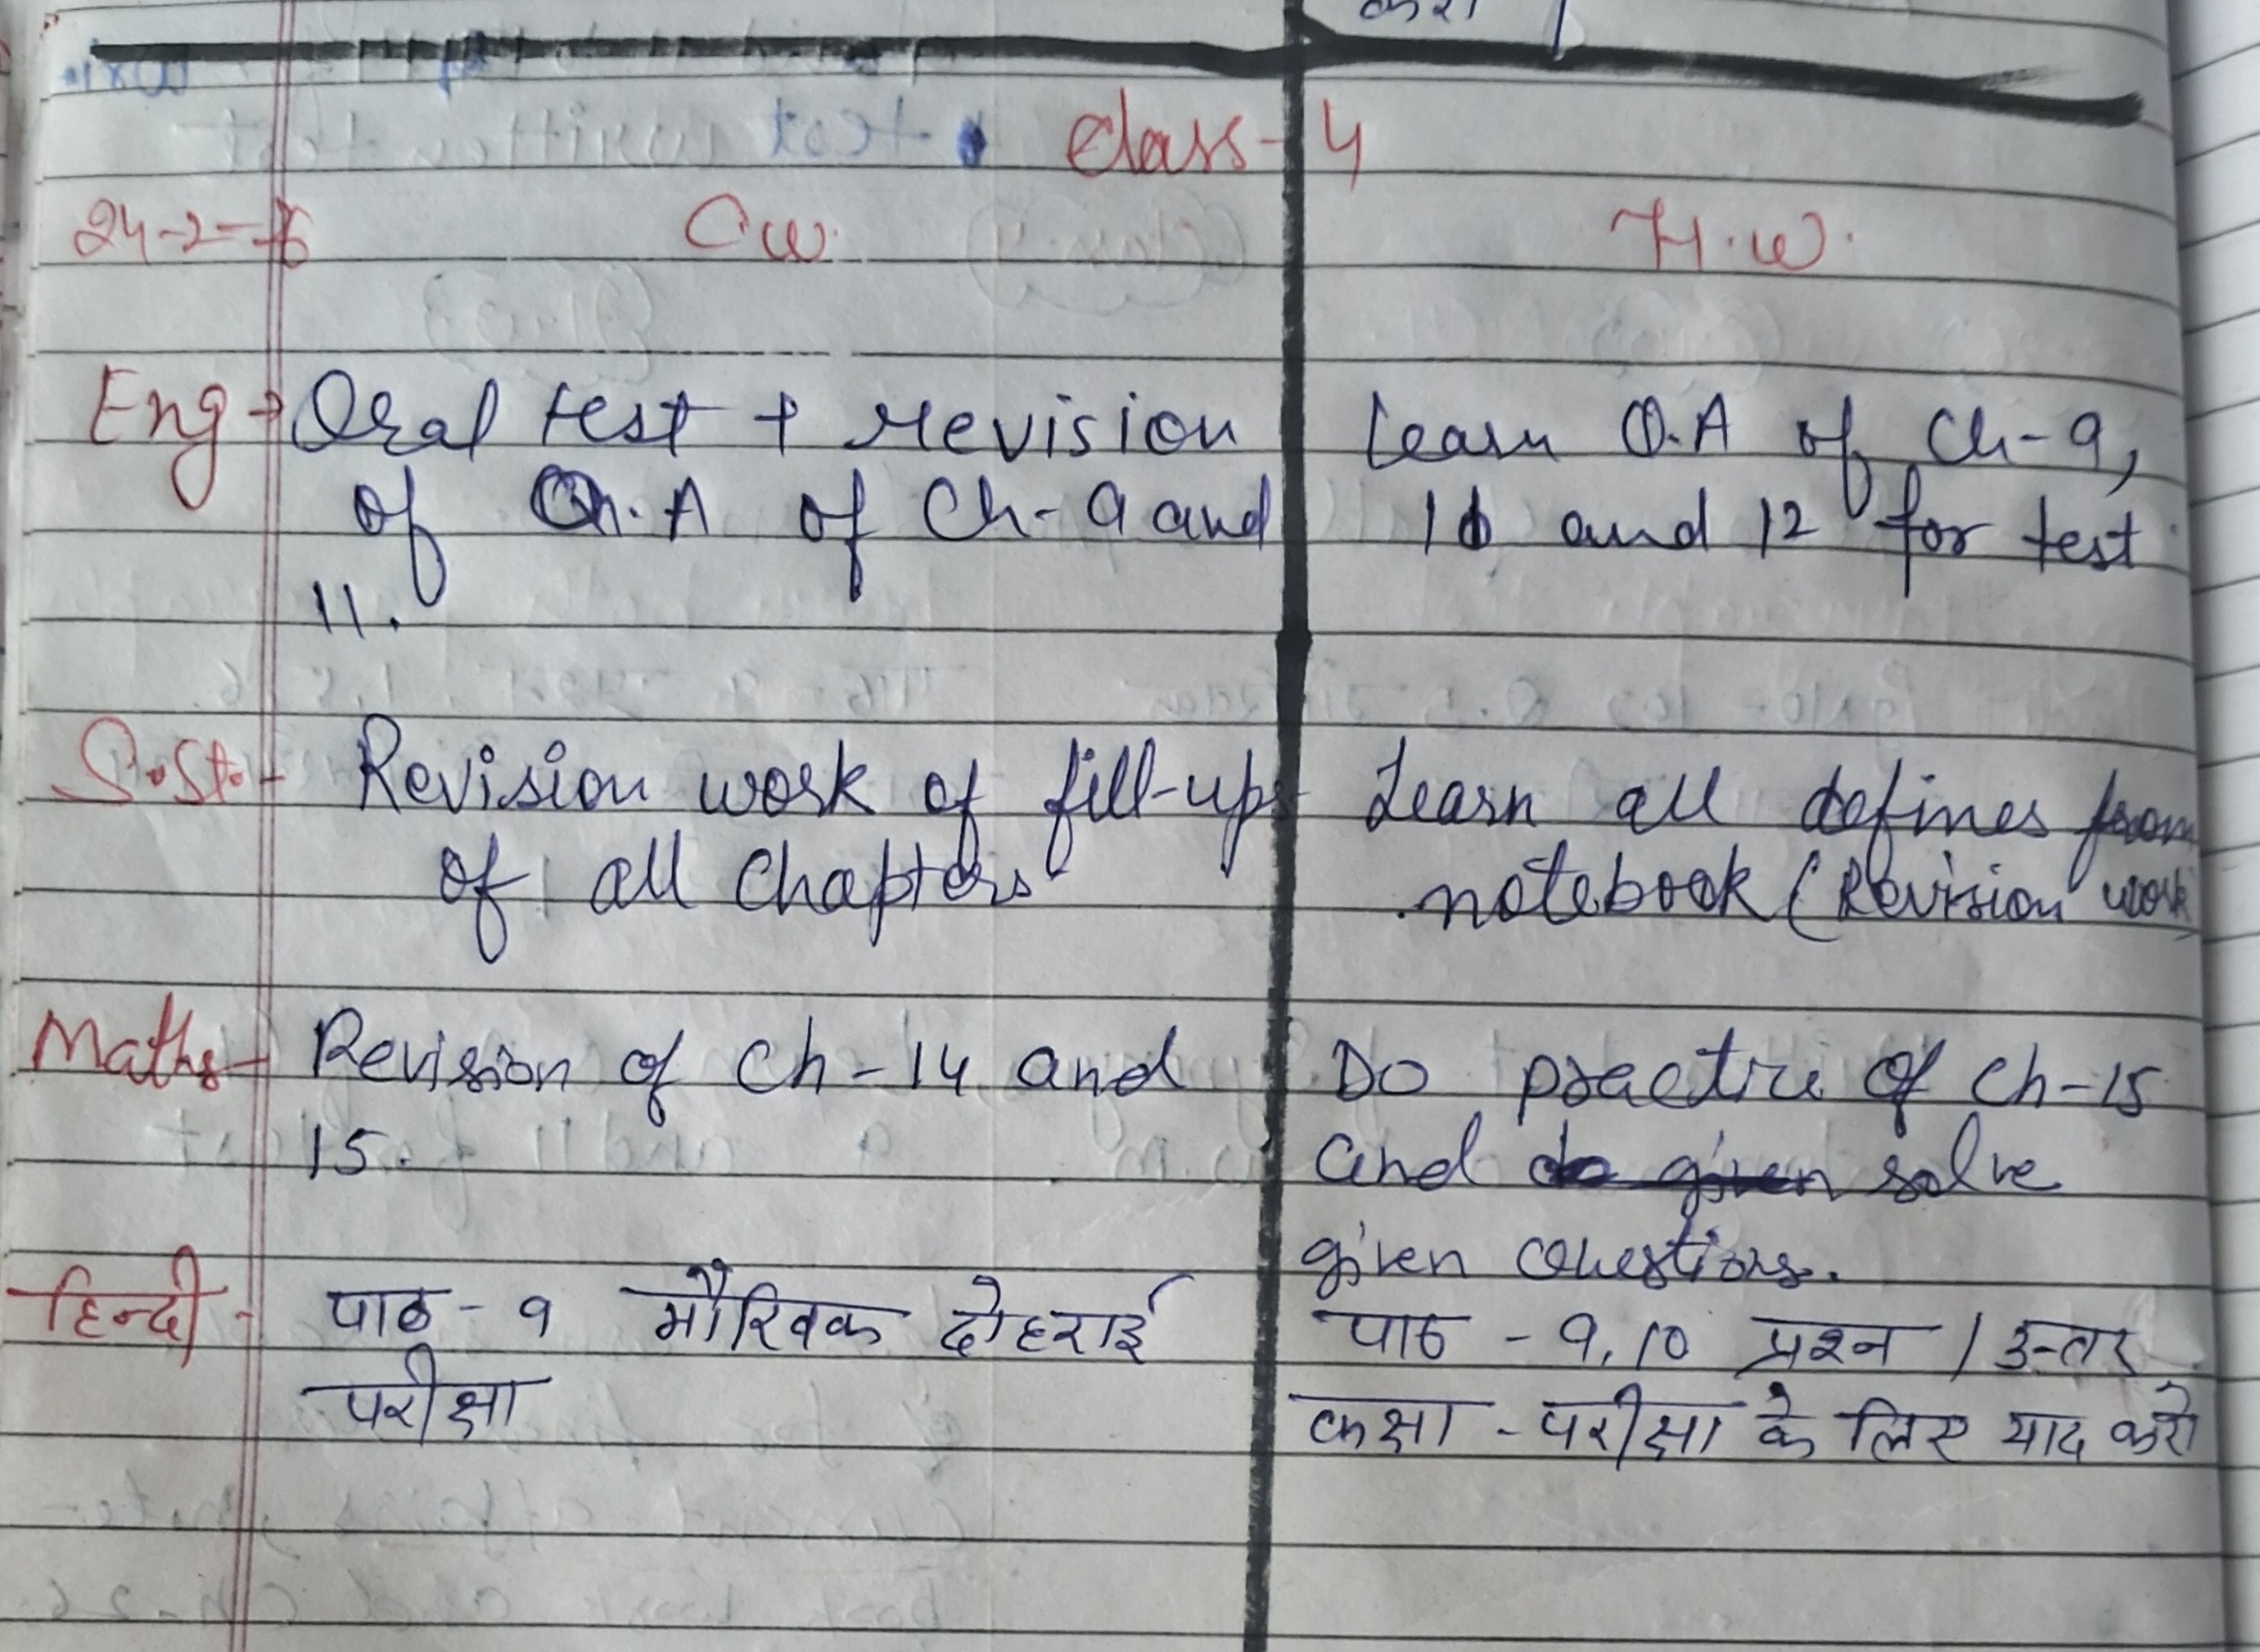 Class-4
24-2-26
C.W.
H.W.
Eng → Oral test + revision
of Qn.A of Ch-9 and
11.
Learn Q.A of Ch-9,
11 and 12 for test
S.St. - Revision work of fill-ups
of all Chapters
Learn all defines from
notebook (Revision work
Maths - Revision of Ch-14 and
15.
Do practice of Ch-15
and solve
given Questions.
हिन्दी - पाठ - 9 मौखिक दोहराई
परीक्षा
पाठ - 9, 10 प्रश्न / उत्तर
कक्षा - परीक्षा के लिए याद करो